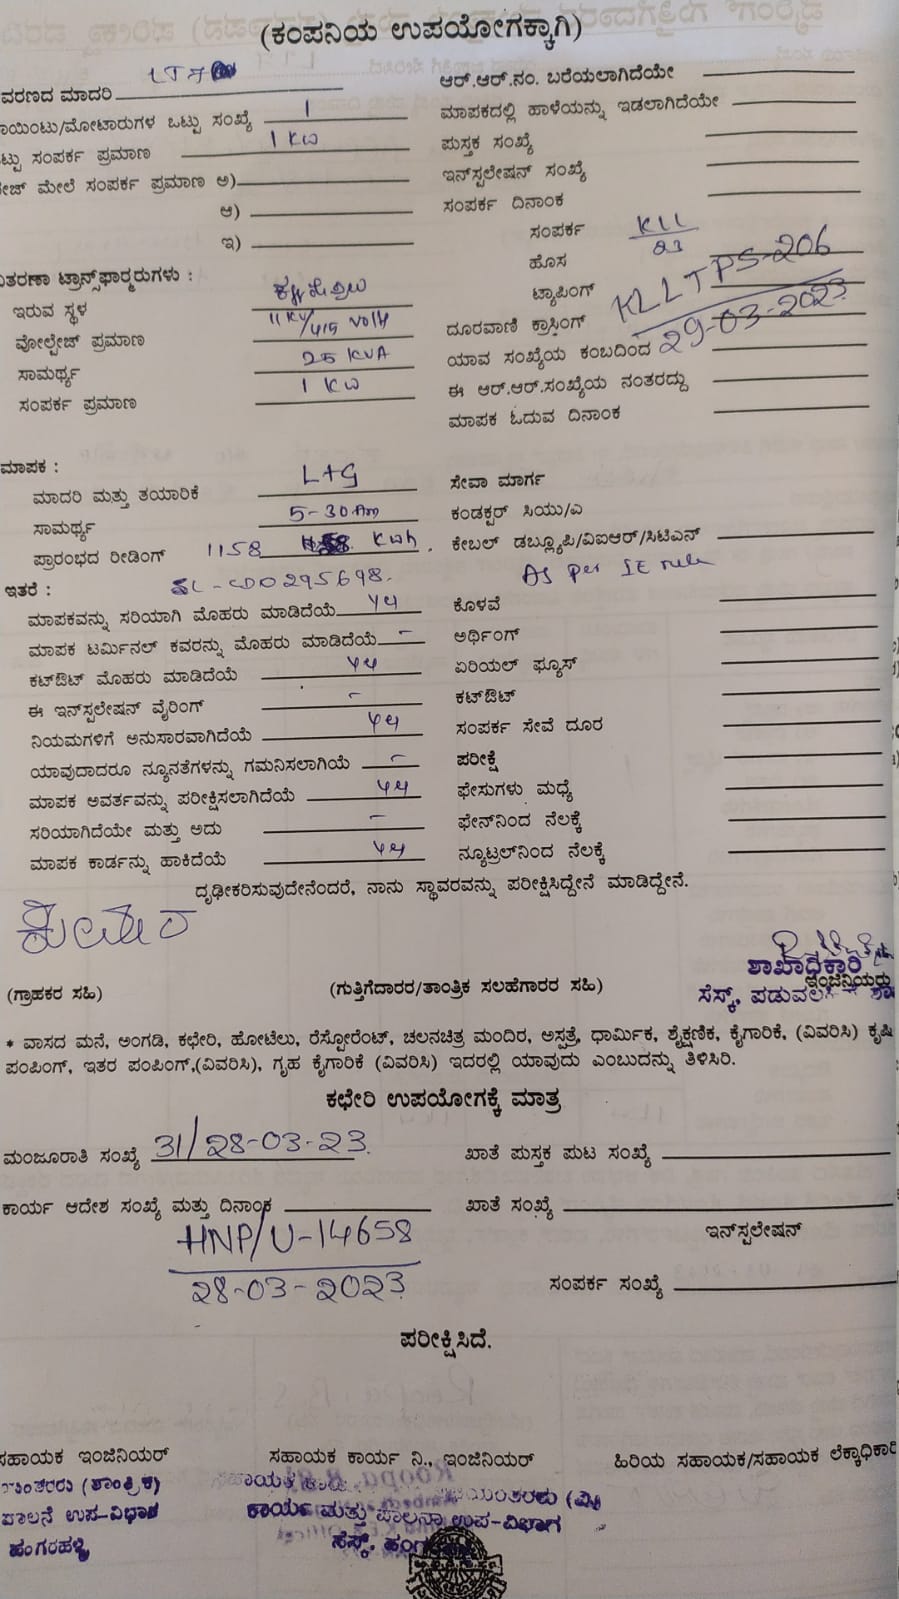 (ಕಂಪನಿಯ ಉಪಯೋಗಕ್ಕಾಗಿ)
ವರಣದ ಮಾದರಿ LT7
ಾಯಿಂಟು/ಮೋಟಾರುಗಳ ಒಟ್ಟು ಸಂಖ್ಯೆ 1
ಟ್ಟು ಸಂಪರ್ಕ ಪ್ರಮಾಣ 1 KW
ೇಜ್ ಮೇಲೆ ಸಂಪರ್ಕ ಪ್ರಮಾಣ ಅ)
ಆ)
ಇ)
ಆರ್.ಆರ್.ನಂ. ಬರೆಯಲಾಗಿದೆಯೇ
ಮಾಪಕದಲ್ಲಿ ಹಾಳೆಯನ್ನು ಇಡಲಾಗಿದೆಯೇ
ಪುಸ್ತಕ ಸಂಖ್ಯೆ
ಇನ್‌ಸ್ಟಲೇಷನ್ ಸಂಖ್ಯೆ
ಸಂಪರ್ಕ ದಿನಾಂಕ
ಸಂಪರ್ಕ KLL
23
ಹೊಸ
ಟ್ಯಾಪಿಂಗ್ KLLTPS-206
ದೂರವಾಣಿ ಕ್ರಾಸಿಂಗ್
ಯಾವ ಸಂಖ್ಯೆಯ ಕಂಬದಿಂದ 29-03-2023
ಈ ಆರ್.ಆರ್.ಸಂಖ್ಯೆಯ ನಂತರದ್ದು
ಮಾಪಕ ಓದುವ ದಿನಾಂಕ
ಿತರಣಾ ಟ್ರಾನ್ಸ್‌ಫಾರ್ಮರುಗಳು :
ಇರುವ ಸ್ಥಳ
ವೋಲ್ಟೇಜ್ ಪ್ರಮಾಣ 11 KV/415 Volt
ಸಾಮರ್ಥ್ಯ 25 KVA
ಸಂಪರ್ಕ ಪ್ರಮಾಣ 1 KW
ಮಾಪಕ :
ಮಾದರಿ ಮತ್ತು ತಯಾರಿಕೆ L+G
ಸಾಮರ್ಥ್ಯ 5-30 Am
ಪ್ರಾರಂಭದ ರೀಡಿಂಗ್ 1158 Kwh
ಇತರೆ : SL-CD0295698.
ಸೇವಾ ಮಾರ್ಗ
ಕಂಡಕ್ಟರ್ ಸಿಯು/ಎ
ಕೇಬಲ್ ಡಬ್ಲ್ಯೂಪಿ/ವಿಐಆರ್/ಸಿಟಿಎನ್
As per IE rule
ಮಾಪಕವನ್ನು ಸರಿಯಾಗಿ ಮೊಹರು ಮಾಡಿದೆಯೆ
ಮಾಪಕ ಟರ್ಮಿನಲ್ ಕವರನ್ನು ಮೊಹರು ಮಾಡಿದೆಯೆ -
ಕಟ್‌ಔಟ್ ಮೊಹರು ಮಾಡಿದೆಯೆ
ಈ ಇನ್‌ಸ್ಟಲೇಷನ್ ವೈರಿಂಗ್ -
ನಿಯಮಗಳಿಗೆ ಅನುಸಾರವಾಗಿದೆಯೆ
ಯಾವುದಾದರೂ ನ್ಯೂನತೆಗಳನ್ನು ಗಮನಿಸಲಾಗಿಯೆ -
ಮಾಪಕ ಅವರ್ತವನ್ನು ಪರೀಕ್ಷಿಸಲಾಗಿದೆಯೆ
ಸರಿಯಾಗಿದೆಯೇ ಮತ್ತು ಅದು -
ಮಾಪಕ ಕಾರ್ಡನ್ನು ಹಾಕಿದೆಯೆ
ಕೊಳವೆ
ಅರ್ಥಿಂಗ್
ಏರಿಯಲ್ ಫ್ಯೂಸ್
ಕಟ್‌ಔಟ್
ಸಂಪರ್ಕ ಸೇವೆ ದೂರ
ಪರೀಕ್ಷೆ
ಫೇಸುಗಳು ಮಧ್ಯೆ
ಫೇಸ್‌ನಿಂದ ನೆಲಕ್ಕೆ
ನ್ಯೂಟ್ರಲ್‌ನಿಂದ ನೆಲಕ್ಕೆ
ದೃಢೀಕರಿಸುವುದೇನೆಂದರೆ, ನಾನು ಸ್ಥಾವರವನ್ನು ಪರೀಕ್ಷಿಸಿದ್ದೇನೆ ಮಾಡಿದ್ದೇನೆ.
ಶಾಖಾಧಿಕಾರಿ
(ಗ್ರಾಹಕರ ಸಹಿ) (ಗುತ್ತಿಗೆದಾರರ/ತಾಂತ್ರಿಕ ಸಲಹೆಗಾರರ ಸಹಿ) ಇಂಜಿನಿಯರು
ಸೆಸ್ಕ್, ಪಡುವಲ
* ವಾಸದ ಮನೆ, ಅಂಗಡಿ, ಕಛೇರಿ, ಹೋಟೆಲು, ರೆಸ್ಟೋರೆಂಟ್, ಚಲನಚಿತ್ರ ಮಂದಿರ, ಅಸ್ಪತ್ರೆ, ಧಾರ್ಮಿಕ, ಶೈಕ್ಷಣಿಕ, ಕೈಗಾರಿಕೆ, (ವಿವರಿಸಿ) ಕೃಷಿ
ಪಂಪಿಂಗ್, ಇತರ ಪಂಪಿಂಗ್,(ವಿವರಿಸಿ), ಗೃಹ ಕೈಗಾರಿಕೆ (ವಿವರಿಸಿ) ಇದರಲ್ಲಿ ಯಾವುದು ಎಂಬುದನ್ನು ತಿಳಿಸಿರಿ.
ಕಛೇರಿ ಉಪಯೋಗಕ್ಕೆ ಮಾತ್ರ
ಮಂಜೂರಾತಿ ಸಂಖ್ಯೆ 31/28-03-23 ಖಾತೆ ಪುಸ್ತಕ ಪುಟ ಸಂಖ್ಯೆ
ಕಾರ್ಯ ಆದೇಶ ಸಂಖ್ಯೆ ಮತ್ತು ದಿನಾಂಕ ಖಾತೆ ಸಂಖ್ಯೆ
HNP/U-14658 ಇನ್‌ಸ್ಟಲೇಷನ್
28-03-2023 ಸಂಪರ್ಕ ಸಂಖ್ಯೆ
ಪರೀಕ್ಷಿಸಿದೆ.
ಸಹಾಯಕ ಇಂಜಿನಿಯರ್ ಸಹಾಯಕ ಕಾರ್ಯ ನಿ., ಇಂಜಿನಿಯರ್ ಹಿರಿಯ ಸಹಾಯಕ/ಸಹಾಯಕ ಲೆಕ್ಕಾಧಿಕಾರಿ
ಂತರರು (ತಾಂತ್ರಿಕ) ಸಹಾಯಕ
ಪಾಲನೆ ಉಪ-ವಿಭಾಗ ಕಾರ್ಯ ಮತ್ತು ಪಾಲನಾ ಉಪ-ವಿಭಾಗ
ಹಂಗರಹಳ್ಳಿ ಸೆಸ್ಕ್,